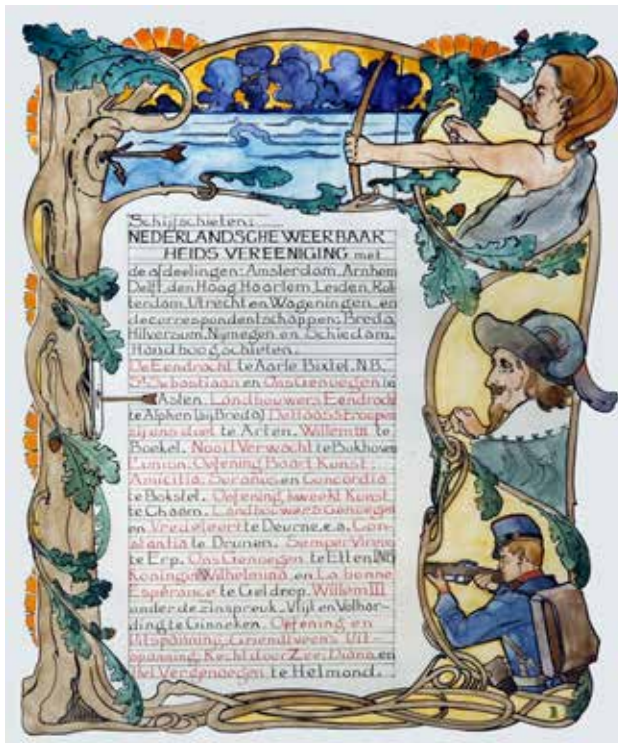 Schijfschieten:
NEDERLANDSCHE WEERBAAR
HEIDS VEREENIGING met
de afdeelingen: Amsterdam, Arnhem
Delft, den Haag, Haarlem, Leiden, Rot
terdam, Utrecht en Wageningen, en
de correspondentschappen: Breda,
Hilversum, Nijmegen en Schiedam.
Handboogschieten.
De Eendracht te Aarle Bixtel. N.B.
St. Sebastiaan en Ons Genoegen te
Asten. Landbouwers Eendracht
te Alphen (bij Breda)
zij ons doel te Arten. Willem III te
Boekel. Nooit Verwacht te Bokhoven
L'union. Oefening Baart Kunst.
Amicitia. en Concordia
te Bokstel. Oefening kweekt Kunst
te Chaam. Landbouwers Genoegen
en te Deurne. c.a. Con-
stantia te Drunen. Semper Virens
te Erp. Ons Genoegen te Etten (NB)
Koningin Wilhelmina en La bonne
Espérance te Geldrop. Willem III
onder de zinspreuk. Vlijt en Volhar-
ding te Ginneken. Oefening en
Uitspanning. Griendtsveen's Uit-
spanning. Recht door Zee. Diana en
Vergenoegen te Helmond.
1